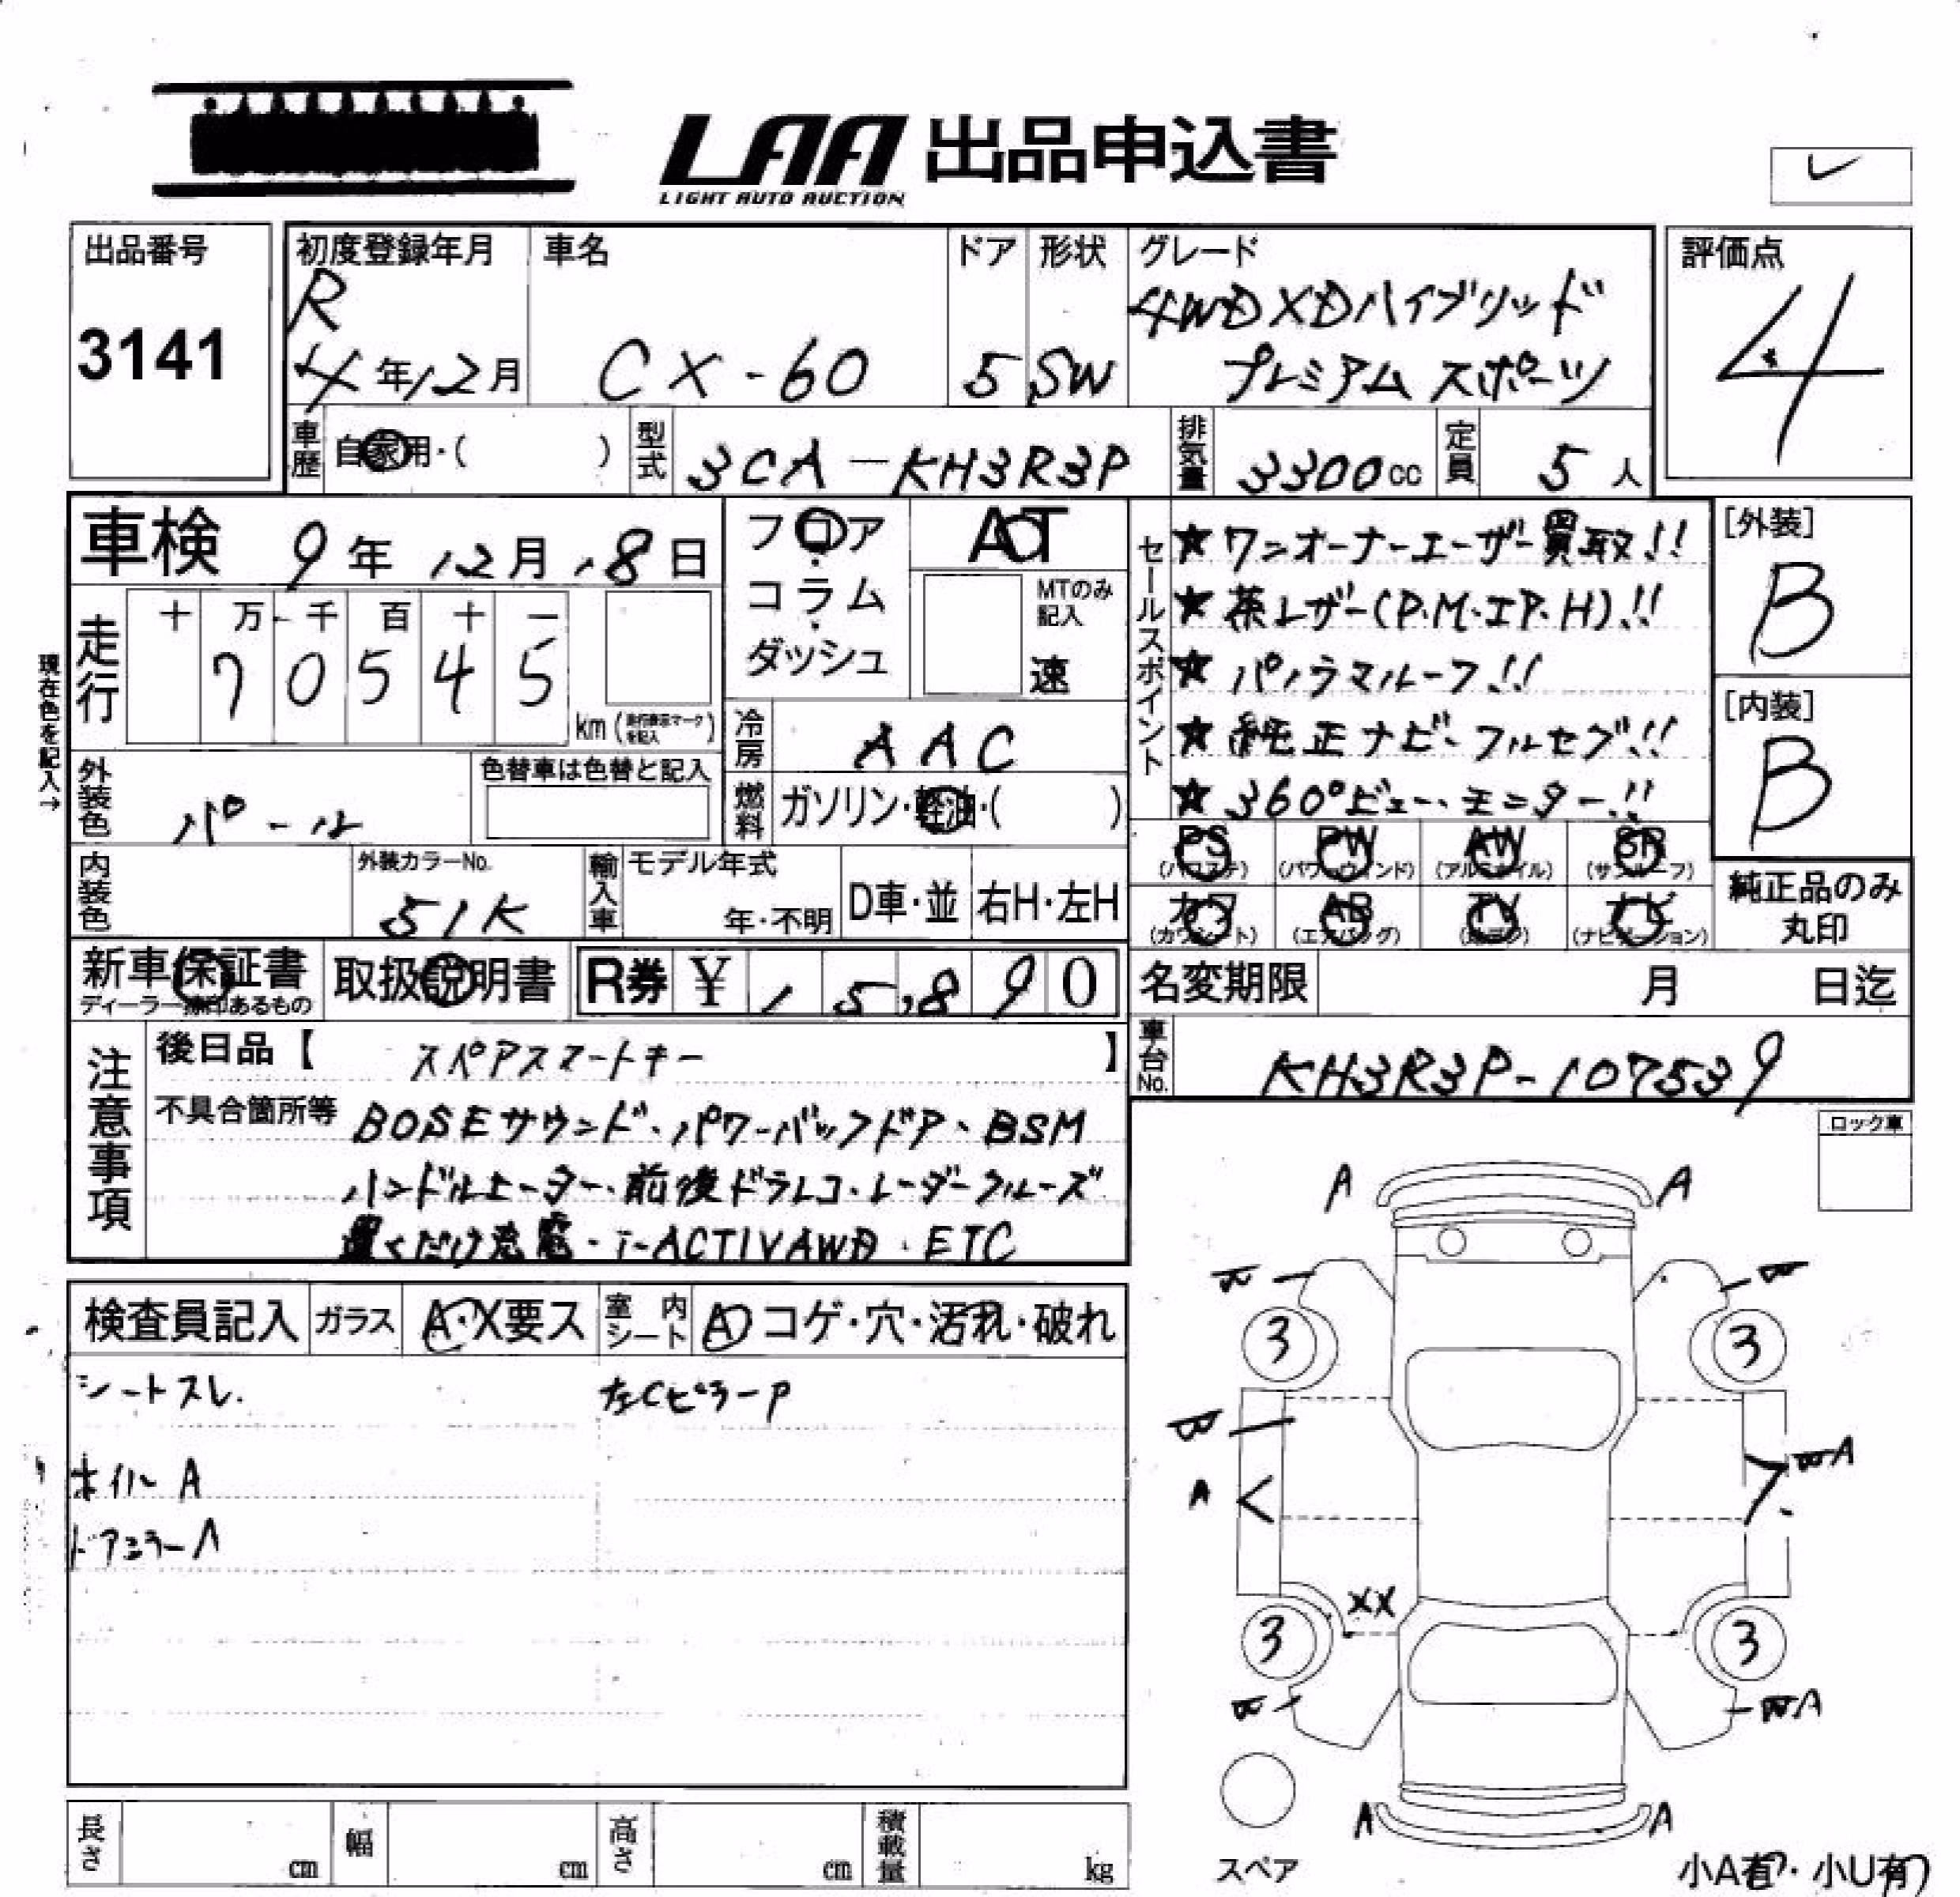 LAA 出品申込書
LIGHT AUTO AUCTION
出品番号
3141
初度登録年月
R
4年12月
車名
CX-60
ドア
5
形状
SW
グレード
4WD XDハイブリッド
プレミアム スポーツ
評価点
4
車歴
自家用・( )
型式
3CA-KH3R3P
排気量
3300cc
定員
5人
車検 9年 12月 18日
フロア
コラム
ダッシュ
AT
MTのみ
記入
速
現在色を記入→
走行
十 万 千 百 十 一
70545
km (走行表示マークを記入)
冷房
AAC
外装色
パール
色替車は色替と記入
燃料
ガソリン・軽油・( )
内装色
外装カラーNo.
51K
輸入車
モデル年式
年・不明
D車・並
右H・左H
セールスポイント
★ワンオーナーユーザー買取!!
★茶レザー(P.M.IP.H)!!
★パノラマルーフ!!
★純正ナビ・フルセグ!!
★360°ビュー・モニター!!
[外装]
B
[内装]
B
PS
(パワステ)
PW
(パワーウインド)
AW
(アルミホイル)
SR
(サンルーフ)
カワ
(カワシート)
AB
(エアバッグ)
TV
ナビ
(ナビゲーション)
純正品のみ
丸印
新車保証書
ディーラー捺印あるもの
取扱説明書
R券 ¥ 15,890
名変期限 月 日迄
車台No.
KH3R3P-107539
注意事項
後日品【 スペアスマートキー 】
不具合箇所等 BOSEサウンド・パワーバックドア・BSM
ハンドルヒーター・前後ドラレコ・レーダークルーズ
置くだけ充電・i-ACTIVAWD・ETC
ロック車
検査員記入
ガラス
A・X要ス
室内シート
A コゲ・穴・汚れ・破れ
シートスレ.
左CピラーP
ホイルA
ドアミラーA
A A
3 3
A
A
XX
3 3
A
A A
スペア
小A有・小U有
長さ cm
幅 cm
高さ cm
積載量 kg